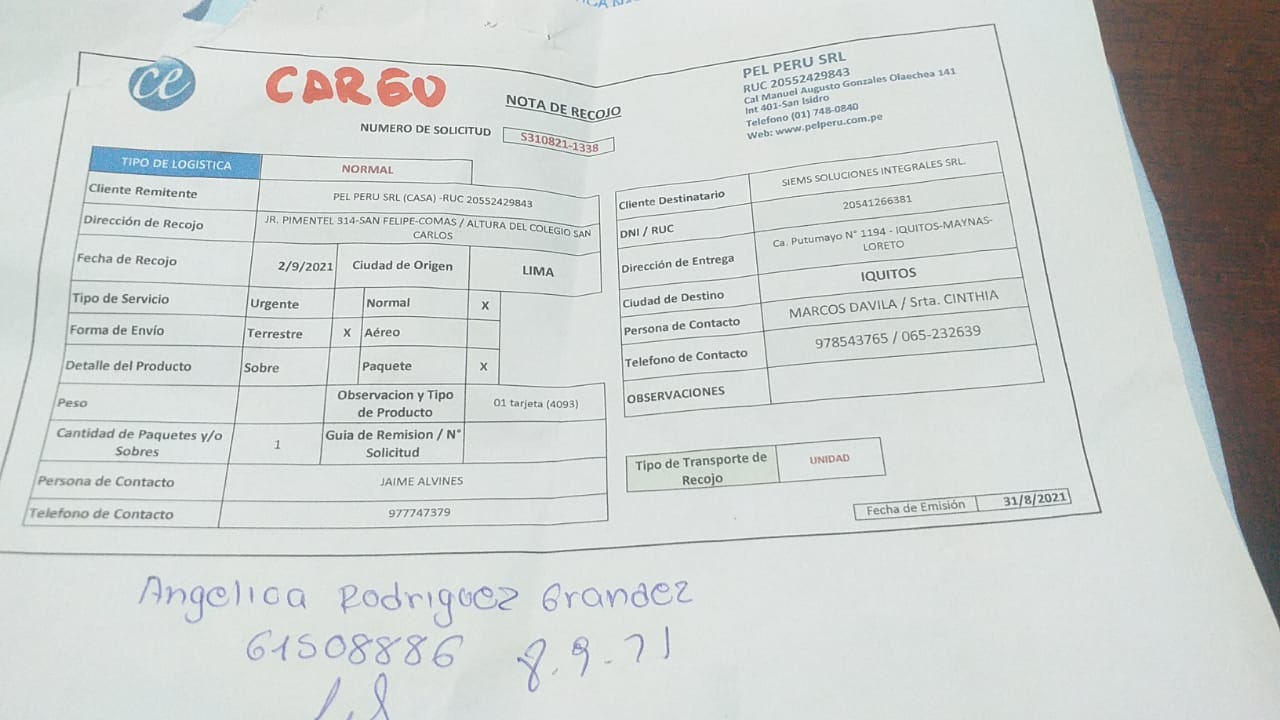 ce
CARGO
NOTA DE RECOJO
NUMERO DE SOLICITUD S310821-1338
PEL PERU SRL
RUC 20552429843
Cal Manuel Augusto Gonzales Olaechea 141
Int 401-San Isidro
Telefono (01) 748-0840
Web: www.pelperu.com.pe
TIPO DE LOGISTICA NORMAL
Cliente Remitente PEL PERU SRL (CASA) -RUC 20552429843
Dirección de Recojo JR. PIMENTEL 314-SAN FELIPE-COMAS / ALTURA DEL COLEGIO SAN
CARLOS
Fecha de Recojo 2/9/2021 Ciudad de Origen LIMA
Tipo de Servicio Urgente Normal X
Forma de Envío Terrestre X Aéreo
Detalle del Producto Sobre Paquete X
Peso Observacion y Tipo
de Producto 01 tarjeta (4093)
Cantidad de Paquetes y/o
Sobres 1 Guia de Remision / N°
Solicitud
Persona de Contacto JAIME ALVINES
Telefono de Contacto 977747379
Cliente Destinatario SIEMS SOLUCIONES INTEGRALES SRL.
DNI / RUC 20541266381
Dirección de Entrega Ca. Putumayo N° 1194 - IQUITOS-MAYNAS-
LORETO
Ciudad de Destino IQUITOS
Persona de Contacto MARCOS DAVILA / Srta. CINTHIA
Telefono de Contacto 978543765 / 065-232639
OBSERVACIONES
Tipo de Transporte de
Recojo UNIDAD
Fecha de Emisión 31/8/2021
Angelica Rodriguez Grandez
61508886 8.9.21